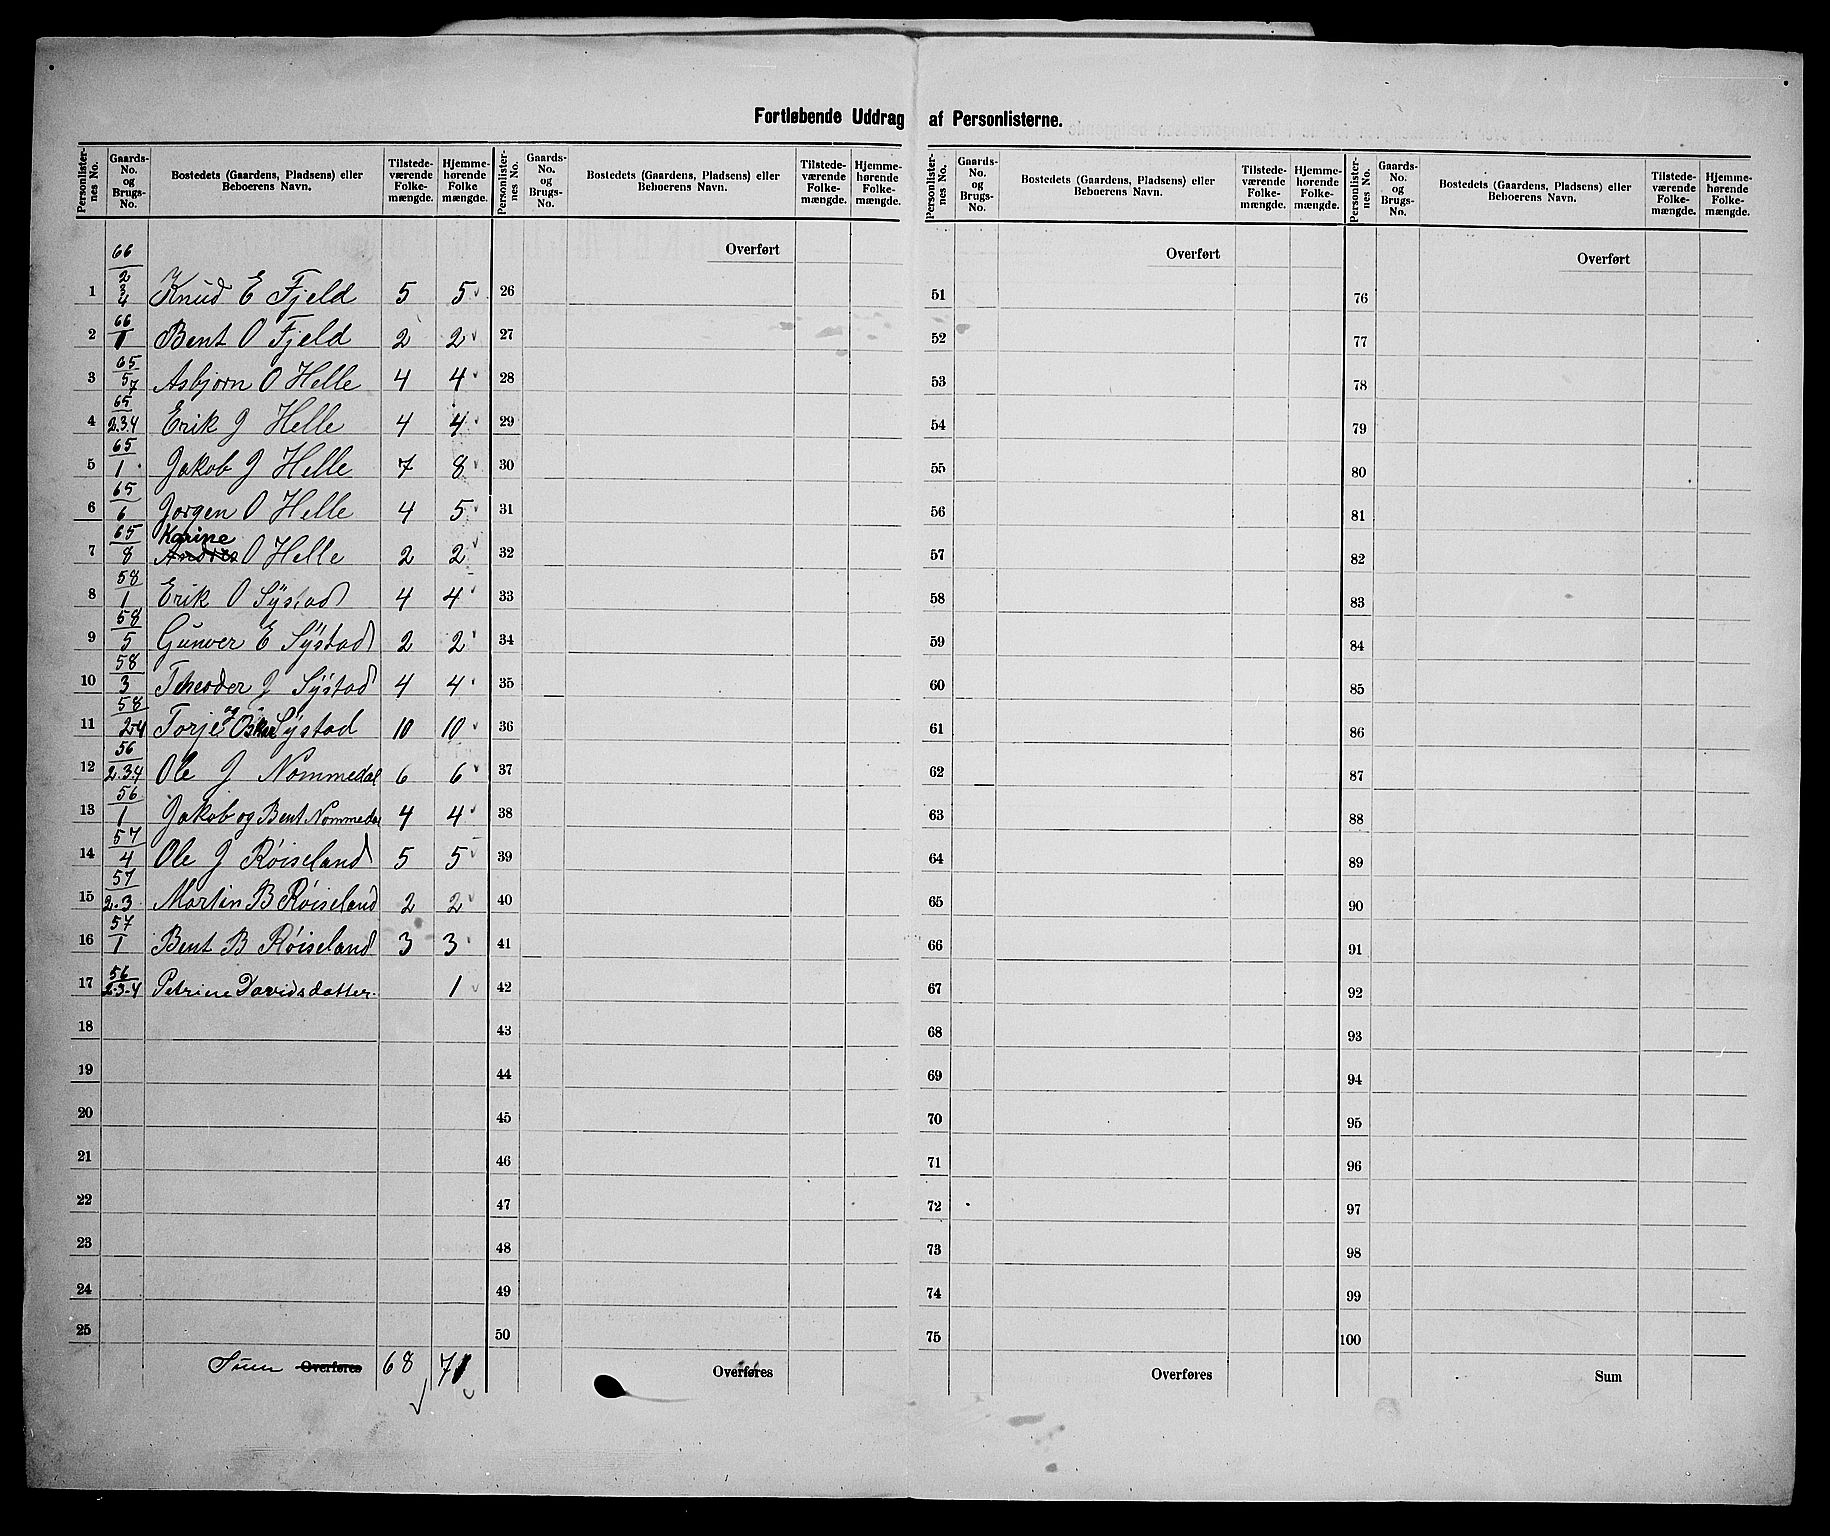 Fortløbende Uddrag af Personlisterne.
Personlister-nes No. | Gaards-No. og Brugs-No. | Bostedets (Gaardens, Pladsens) eller Beboerens Navn. | Tilstede-værende Folke-mængde. | Hjemme-hørende Folke mængde.
1 | 66/2 3 4 | Knud E Fjeld | 5 | 5
2 | 66/1 | Bent O Fjeld | 2 | 2
3 | 65/5 7 | Asbjørn O Helle | 4 | 4
4 | 65/2.3.4 | Erik J Helle | 4 | 4
5 | 65/1 | Jakob J Helle | 7 | 8
6 | 65/6 | Jørgen O Helle | 4 | 5
Karine
7 | 65/8 | Andres O Helle | 2 | 2
8 | 58/1 | Erik O Systad | 4 | 4
9 | 58/5 | Gunver E Systad | 2 | 2
10 | 58/3 | Theoder J Systad | 4 | 4
11 | 58/2-4 | Torje og Oskar Systad | 10 | 10
12 | 56/2.3.4 | Ole J Nommedal | 6 | 6
13 | 56/1 | Jakob og Bent Nommedal | 4 | 4
14 | 57/4 | Ole J Røiseland | 5 | 5
15 | 57/2.3 | Martin B Røiseland | 2 | 2
16 | 57/1 | Bent B Røiseland | 3 | 3
17 | 56/2-3-4 | Petrine Davidsdatter. | 1
18
19
20
21
22
23
24
25
Sum Overføres 68 71
Personlister-nes No. | Gaards-No. og Brugs-No. | Bostedets (Gaardens, Pladsens) eller Beboerens Navn. | Tilstede-værende Folke-mængde. | Hjemme-hørende Folke-mængde.
Overført
26
27
28
29
30
31
32
33
34
35
36
37
38
39
40
41
42
43
44
45
46
47
48
49
50
Overføres
Personlister-nes No. | Gaards-No. og Brugs-No. | Bostedets (Gaardens, Pladsens) eller Beboerens Navn. | Tilstede-værende Folke-mængde. | Hjemme-hørende Folke-mængde.
Overført
51
52
53
54
55
56
57
58
59
60
61
62
63
64
65
66
67
68
69
70
71
72
73
74
75
Overføres
Personlister-nes No. | Gaards-No. og Brugs-No. | Bostedets (Gaardens, Pladsens) eller Beboerens Navn. | Tilstede-værende Folke-mængde. | Hjemme-hørende Folke-mængde.
Overført
76
77
78
79
80
81
82
83
84
85
86
87
88
89
90
91
92
93
94
95
96
97
98
99
100
Sum